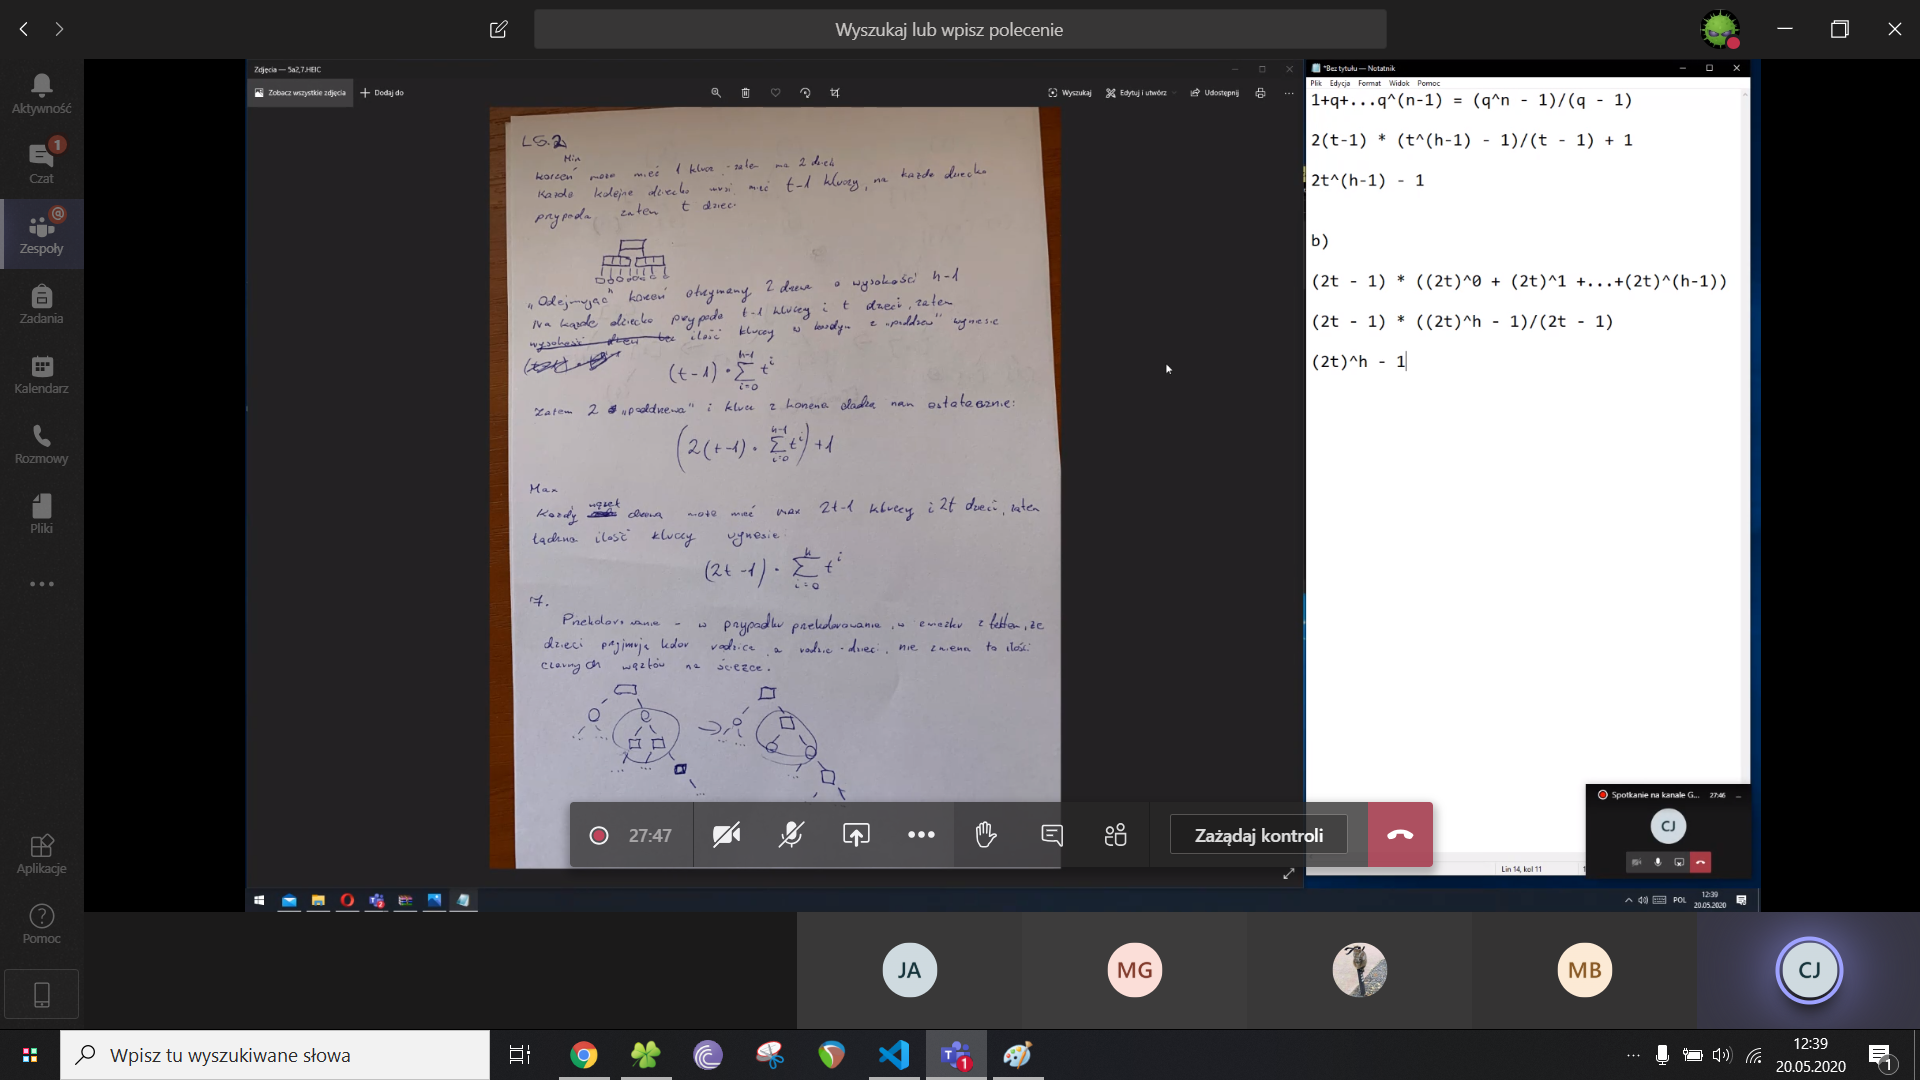 Wyszukaj lub wpisz polecenie
Aktywność
Czat
1
Zespoły
Zadania
Kalendarz
Rozmowy
Pliki
Aplikacje
Pomoc
Zdjęcia — 5a2,7.HEIC
Zobacz wszystkie zdjęcia
Dodaj do
Wyszukaj
Edytuj i utwórz
Udostępnij
L5.2
Min
korzeń może mieć 1 klucz, zatem ma 2 dzieci
Każde kolejne dziecko musi mieć t-1 kluczy, na każde dziecko
przypada zatem t dzieci
„Odejmując" korzeń otrzymamy 2 drzewa o wysokości h-1
Na każde dziecko przypada t-1 kluczy i t dzieci, zatem
ilość kluczy w każdym z „poddrzew" wyniesie
(t-1) · h-1 Σ i=0 t^i
Zatem 2 „poddrzewa" i klucz z korzenia dadzą nam ostatecznie:
(2(t-1) · h-1 Σ i=0 t^i) +1
Max
Każdy węzeł drzewa może mieć max 2t-1 kluczy i 2t dzieci, zatem
łączna ilość kluczy wyniesie:
(2t-1) · h Σ i=0 t^i
7.
Przekolorowanie - w przypadku przekolorowania, w związku z faktem, że
dzieci przyjmują kolor rodzica, a rodzic - dzieci, nie zmienia to ilości
czarnych węzłów na ścieżce.
*Bez tytułu — Notatnik
Plik Edycja Format Widok Pomoc
1+q+...q^(n-1) = (q^n - 1)/(q - 1)
2(t-1) * (t^(h-1) - 1)/(t - 1) + 1
2t^(h-1) - 1
b)
(2t - 1) * ((2t)^0 + (2t)^1 +...+(2t)^(h-1))
(2t - 1) * ((2t)^h - 1)/(2t - 1)
(2t)^h - 1
Spotkanie na kanale G... 27:46
CJ
Lin 14, kol 11
27:47
Zażądaj kontroli
POL
12:39
20.05.2020
JA
MG
MB
CJ
Wpisz tu wyszukiwane słowa
1
12:39
20.05.2020
1